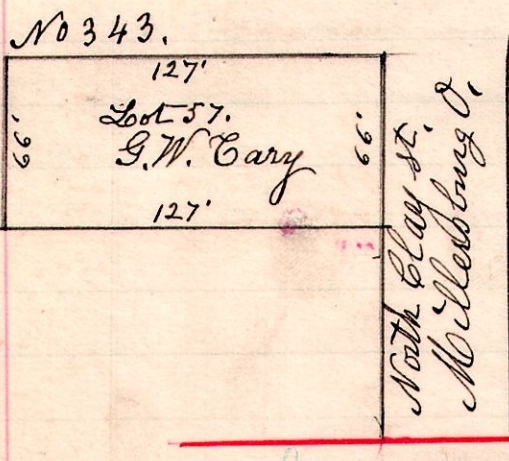 No 343.
127'
66'
Lot 57.
G.W. Cary
66'
127'
North Clay st.
Millersburg O.